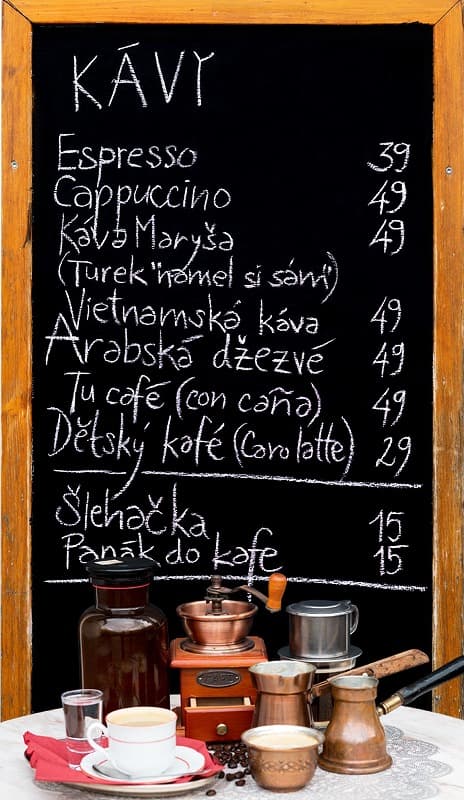 KÁVY
Espresso 39
Cappuccino 49
Káva Maryša 49
(Turek "namel si sám")
Vietnamská káva 49
Arabská džezvé 49
Tu café (con caña) 49
Dětský kafé (Caro latte) 29
Šlehačka 15
Panák do kafe 15